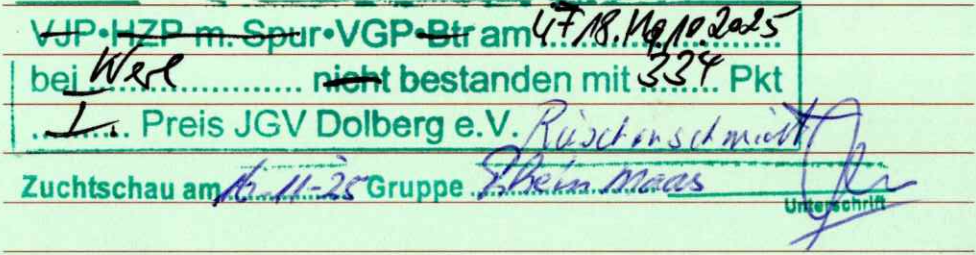 VJP•HZP m. Spur•VGP•Btr am 18./19.10.2025
bei Werl nicht bestanden mit 334 Pkt
I. Preis JGV Dolberg e.V.
Zuchtschau am 16.11-25 Gruppe Rhein Maas
Unterschrift